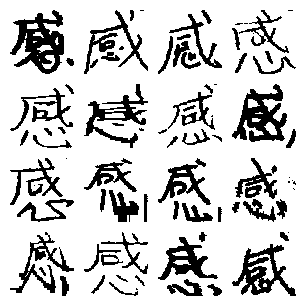 感感感感
感感感感
感感感感
感感感感